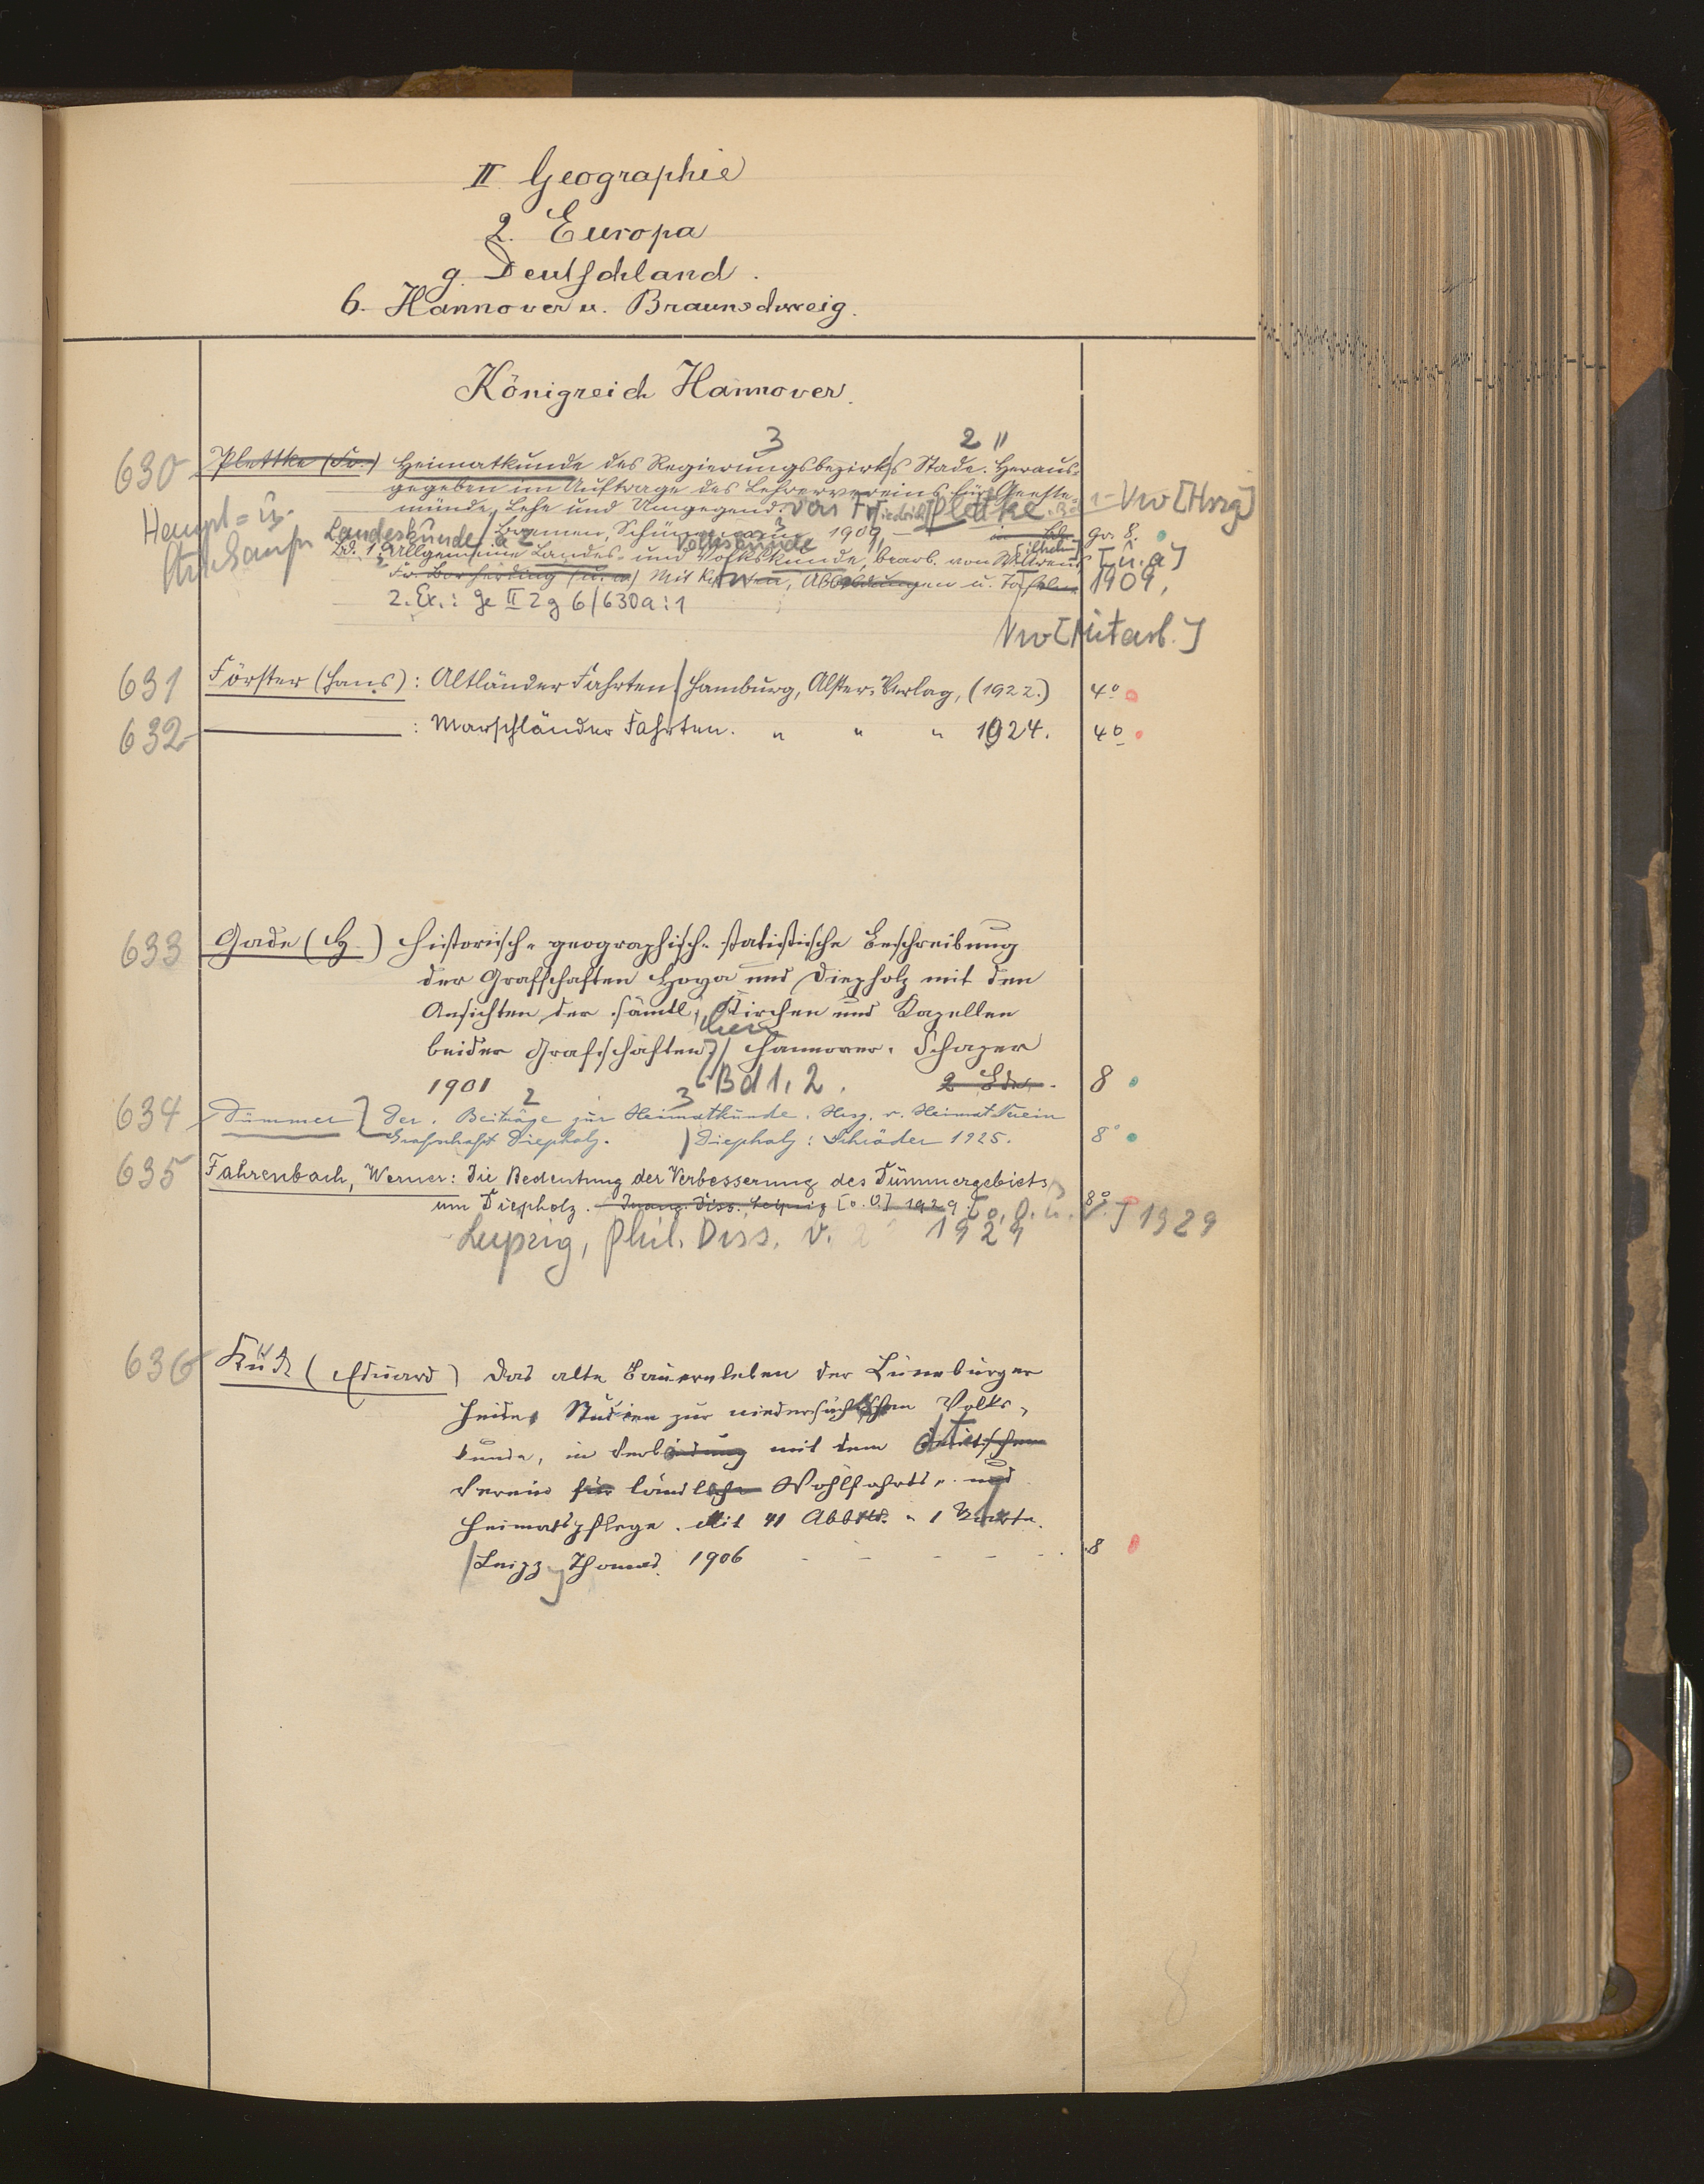 II Geographie
2. Europa
g. Deutschland.
6. Hannover u. Braunschweig.
Königreich Hannover.
3 2 "
630 Plettke (Fr.) Heimatkunde des Regierungsbezirks Stade. Heraus-
gegeben im Auftrage des Lehrervereins für Geeste-
münde, Lehe und Umgegend. von Friedrich Plettke. Bd 1- Vw [Hrsg]
Haupt= u.
Bremen, 1909, Gr. 8.
Landeskunde Volkskunde
Bd. 1 Allgemeine Landes- und Volkskunde, bearb. von [u. a]
Fr. Borcherding (u. a) Mit Karten, Abbildungen u. Tafeln 1909,
2. Ex.: Ge II 2 g 6/630a:1
Vw [Mitarb.]
631 Förster (Hans): Altländer Fahrten. Hamburg, Alster-Verlag, (1922.) 4°
632 : Marschländer Fahrten. " " " 1924. 4°
633 Gade (H.) Historisch-geographisch-statistische Beschreibung
der Grafschaften Hoya und Diepholz mit den
Ansichten der sämtl. Kirchen und Kapellen
beider Grafschaften Hannover. Schaper
1901 Bd 1. 2. 2 Bde. 8
2 3
634 Dümmer Der. Beiträge zur Heimatkunde. Hrsg. v. Heimat Verein
Grafschaft Diepholz. Diepholz: Schröder 1925. 8°
635 Fahrenbach, Werner: Die Bedeutung der Verbesserung des Dümmergebiets
um Diepholz. Inaug. Diss. Leipzig [o. O.] 1929. 8° [o. O. u. V.] 1929
Leipzig, Phil. Diss. v. 1929
636 Kück (Eduard) Das alte Bauernleben der Lüneburger
Heide. Studien zur niedersächsischen Volks-
kunde, in Verbindung mit dem deutschen
Verein für ländliche Wohlfahrts- und
Heimatpflege. Mit 41 Abbild. u 1 Karte.
Leipz. Thomas. 1906 8
8